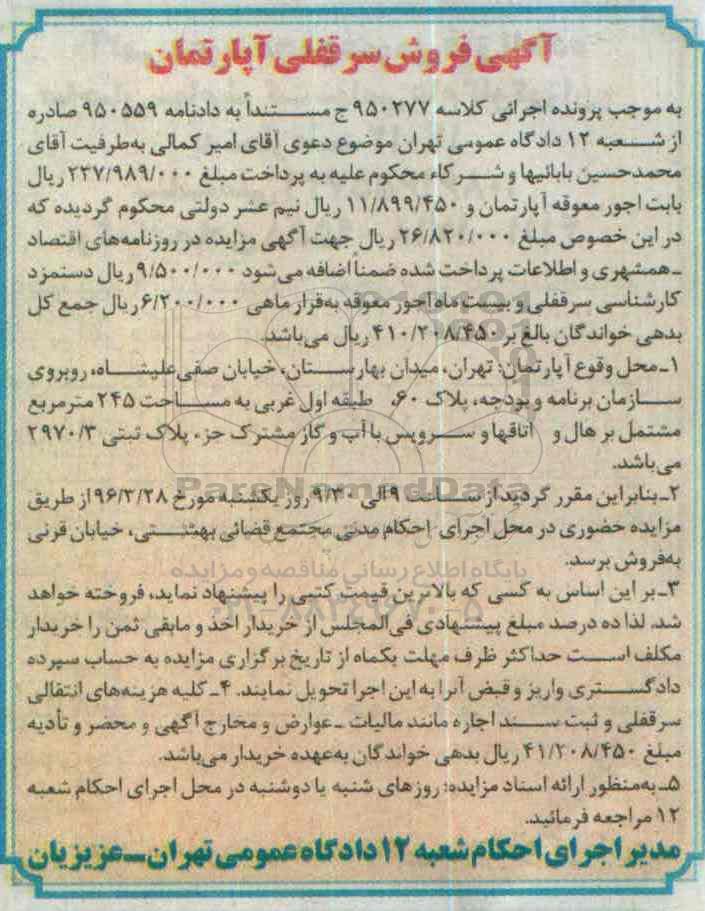 آگهی فروش سرقفلی آپارتمان
به موجب پرونده اجرائی کلاسه ۹۵۰۲۷۷ج مستنداً به دادنامه ۹۵۰۵۵۹ صادره
از شعبه ۱۲ دادگاه عمومی تهران موضوع دعوی آقای امیر کمالی به‌طرفیت آقای
محمدحسین بابائیها و شرکاء محکوم علیه به پرداخت مبلغ ۲۳۷/۹۸۹/۰۰۰ ریال
بابت اجور معوقه آپارتمان و ۱۱/۸۹۹/۴۵۰ ریال نیم عشر دولتی محکوم گردیده که
در این خصوص مبلغ ۲۶/۸۲۰/۰۰۰ ریال جهت آگهی مزایده در روزنامه‌های اقتصاد
ـ همشهری و اطلاعات پرداخت شده ضمناً اضافه می‌شود ۹/۵۰۰/۰۰۰ ریال دستمزد
کارشناسی سرقفلی و بیست ماه اجور معوقه به‌قرار ماهی ۶/۲۰۰/۰۰۰ ریال جمع کل
بدهی خواندگان بالغ بر ۴۱۰/۲۰۸/۴۵۰ ریال می‌باشد.
۱ـ محل وقوع آپارتمان: تهران، میدان بهارستان، خیابان صفی‌علیشاه، روبروی
سازمان برنامه و بودجه، پلاک ۶۰، طبقه اول غربی به مساحت ۲۴۵ مترمربع
مشتمل بر هال و اتاقها و سرویس با آب و گاز مشترک جزء پلاک ثبتی ۲۹۷۰/۳
می‌باشد.
۲ـ بنابراین مقرر گردید از ساعت ۹ الی ۹/۳۰ روز یکشنبه مورخ ۹۶/۳/۲۸ از طریق
مزایده حضوری در محل اجرای احکام مدنی مجتمع قضائی بهشتی، خیابان قرنی
به‌فروش برسد.
۳ـ بر این اساس به کسی که بالاترین قیمت کتبی را پیشنهاد نماید، فروخته خواهد
شد. لذا ده درصد مبلغ پیشنهادی فی‌المجلس از خریدار اخذ و مابقی ثمن را خریدار
مکلف است حداکثر ظرف مهلت یکماه از تاریخ برگزاری مزایده به حساب سپرده
دادگستری واریز و قبض آنرا به این اجرا تحویل نمایند. ۴ـ کلیه هزینه‌های انتقالی
سرقفلی و ثبت سند اجاره مانند مالیات ـ عوارض و مخارج آگهی و محضر و تأدیه
مبلغ ۴۱/۲۰۸/۴۵۰ ریال بدهی خواندگان به‌عهده خریدار می‌باشد.
۵ـ به‌منظور ارائه اسناد مزایده: روزهای شنبه یا دوشنبه در محل اجرای احکام شعبه
۱۲ مراجعه فرمائید.
مدیر اجرای احکام شعبه ۱۲ دادگاه عمومی تهران ـ عزیزیان
ParsNamadData
پایگاه اطلاع رسانی مناقصه و مزایده
۰۲۱-۸۸۳۴۹۶۷۰-۵